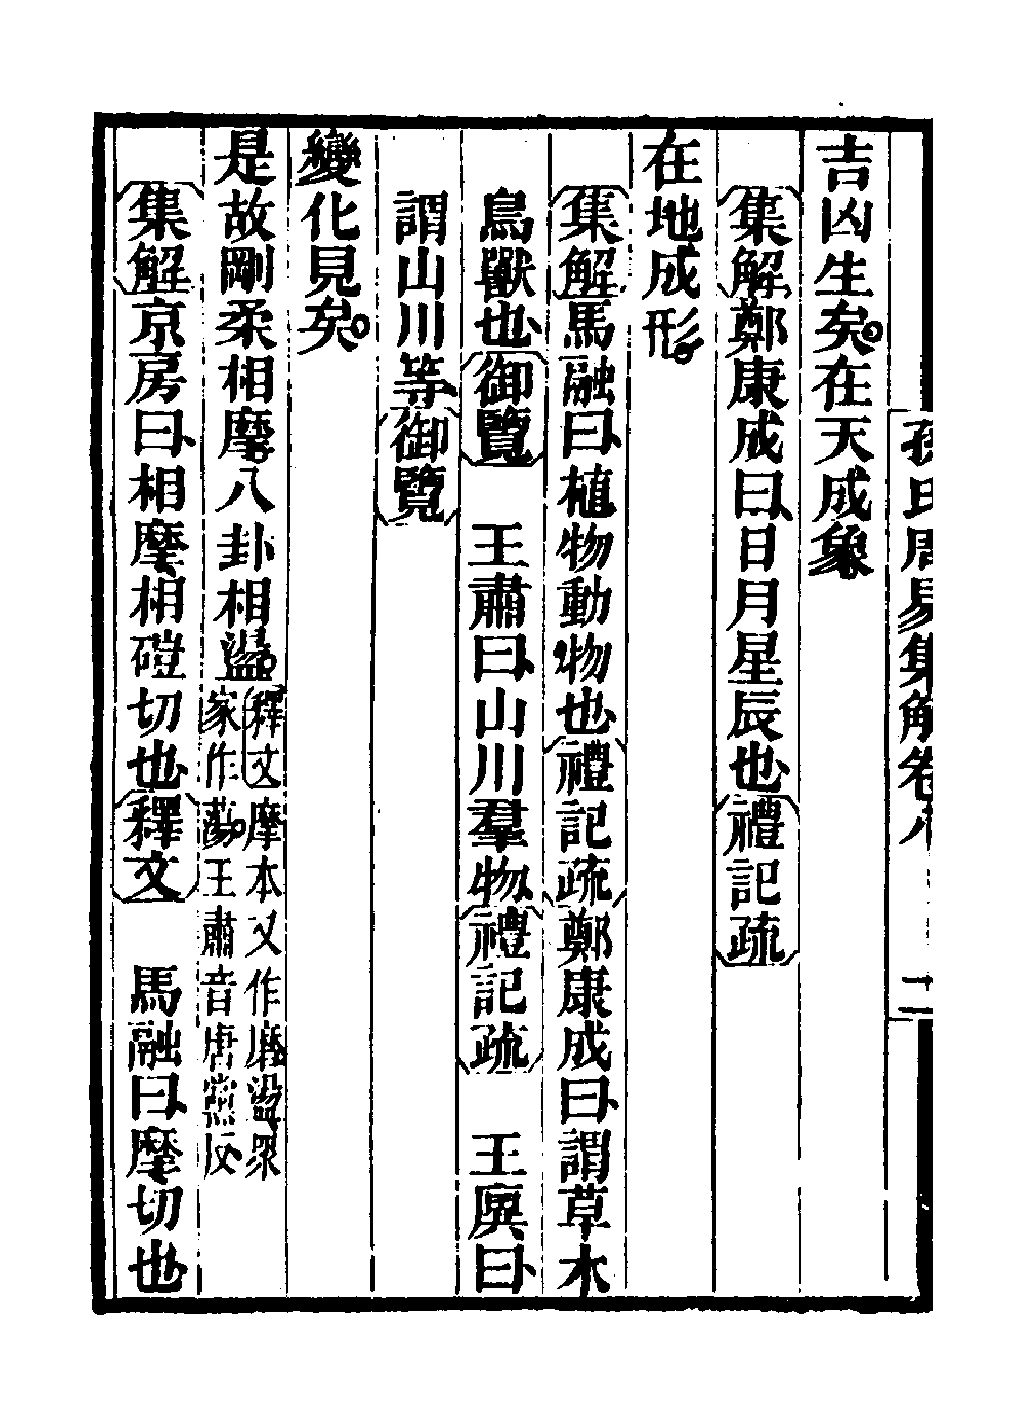 孫氏周易集解卷八
吉凶生矣。在天成象
集解鄭康成曰、日月星辰也禮記疏
在地成形。
集解馬融曰、植物動物也禮記疏鄭康成曰、謂草木
鳥獸也、御覽 王肅曰、山川羣物、禮記疏 王廙曰、
謂山川等、御覽
變化見矣。
是故剛柔相摩。八卦相盪。釋文摩本又作磨、盪衆
家作蕩。王肅音唐黨反、
集解京房曰、相摩、相磑切也、釋文 馬融曰、摩切也